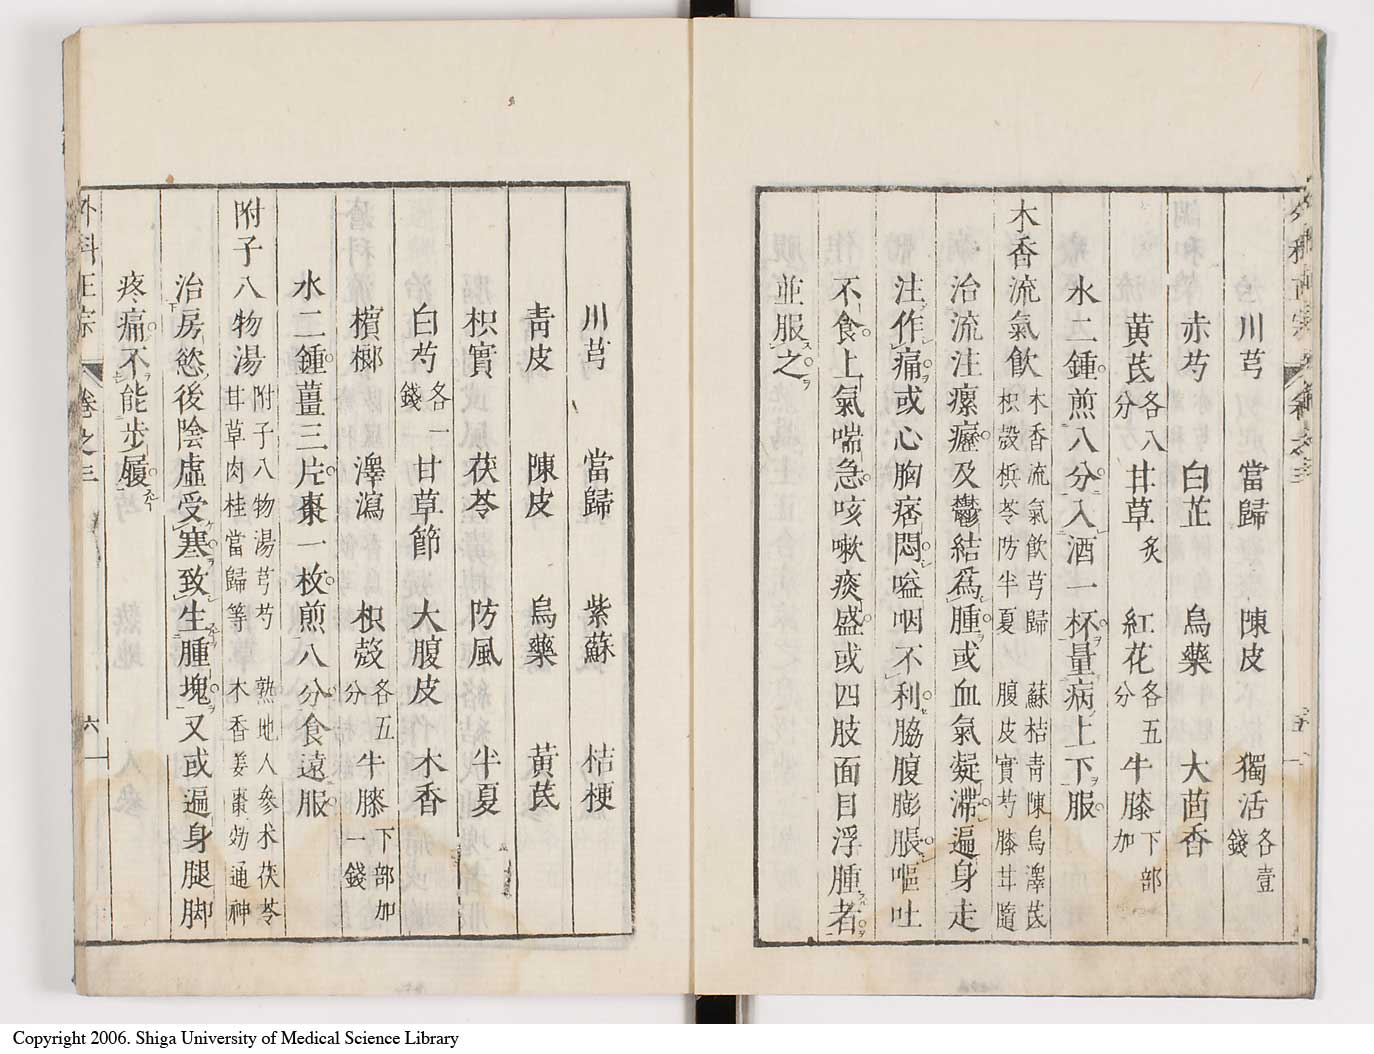 川芎 當歸 陳皮 獨活各壹錢
赤芍 白芷 烏藥 大茴香
黃芪各八分 甘草炙 紅花各五分 牛膝下部加
水二鍾煎八分入酒一杯量病上下服
木香流氣飲 木香流氣飲芎歸 蘇桔靑陳烏澤芪
枳殼梹苓防半夏 腹皮實芍膝甘隨
治流注瘰癧及鬱結爲腫或血氣凝滯遍身走
注作痛或心胸痞悶嗌咽不利脇腹膨脹嘔吐
不食上氣喘急咳嗽痰盛或四肢面目浮腫者
並服之
川芎 當歸 紫蘇 桔梗
靑皮 陳皮 烏藥 黃芪
枳實 茯苓 防風 半夏
白芍各一錢 甘草節 大腹皮 木香
檳榔 澤瀉 枳殼各五分 牛膝下部加一錢
水二鍾薑三片棗一枚煎八分食遠服
附子八物湯 附子八物湯芎芍 熟地人參朮茯苓
甘草肉桂當歸等 木香姜棗効通神
治房慾後陰虛受寒致生腫塊又或遍身腿脚
疼痛不能步履
外科正宗 卷之三 六
Copyright 2006. Shiga University of Medical Science Library